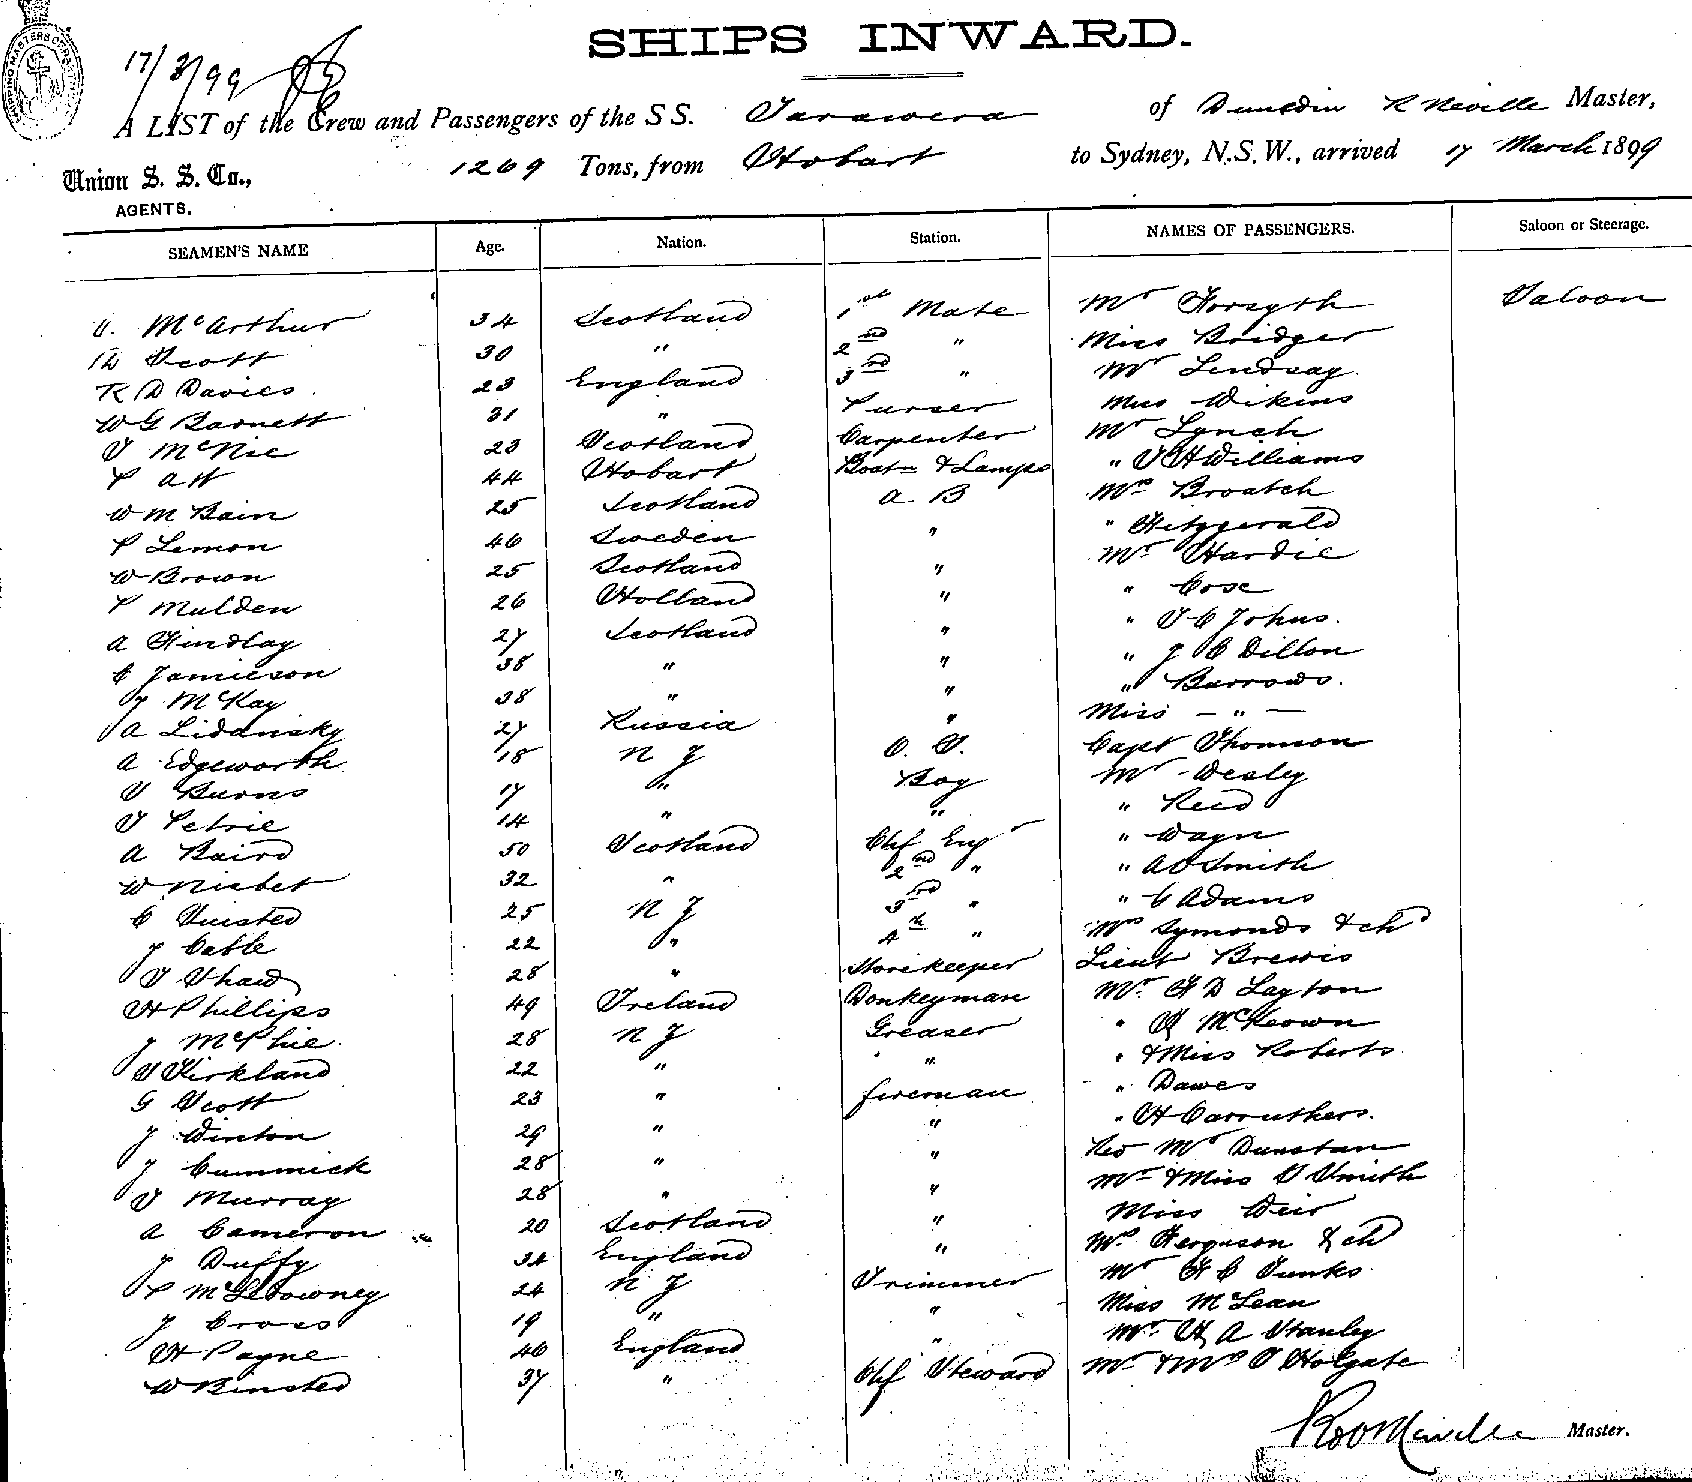 SHIPS INWARD.
17/3/99
A LIST of the Crew and Passengers of the S S. Tarawera of Dunedin R Neville Master,
Union S. S. Co., 1269 Tons, from Hobart to Sydney, N.S.W., arrived 17 March 1899
AGENTS.
SEAMEN'S NAME Age. Nation. Station. NAMES OF PASSENGERS. Saloon or Steerage.
McArthur 34 Scotland 1st Mate Mr Forsyth Saloon
Scott 30 " 2nd " Miss Bridger
R D Davies 23 England 3rd " Mr Lindsay
W G Barnett 31 " Purser Miss Wikins
J McNie 23 Scotland Carpenter Mr Lynch
P 44 Hobart Boatn & Lamps " J H Williams
W M Bain 25 Scotland A B Mrs Broatch
P Lemon 46 Sweden " " Fitzgerald
W Brown 25 Scotland " Mr Hardie
P Mulden 26 Holland " " Cose
A Findlay 27 Scotland " " J C Johns.
C Jamieson 38 " " " J C Dillon
J McKay 38 " " " Barrows.
A Lidansky 27 Russia " Miss — " —
A Edgeworth 18 N Z O. S. Capt Thomson
J Burns 17 " Boy Mr Wesley
J Petrie 14 " " " Reid
A Baird 50 Scotland Chf Engr " Wayn
W Nisbet 32 " 2nd " " A D Smith
C 25 N Z 3rd " " C Adams
J Cable 22 " 4th " Mrs Symonds & chd
J Shaw 28 " Storekeeper Lieut Brewis
H Phillips 49 Ireland Donkeyman Mr F D Layton
J McPhie 28 N Z Greaser " McKeown
J Kirkland 22 " " " & Miss Roberts
G Scott 23 " fireman " Dawes
J Winton 29 " " " H Carruthers.
J Cummick 28 " " Rev Mr Dunstan
J Murray 28 " " Mr & Miss S Smith
A Cameron 20 Scotland " Miss Weir
J Duffy 34 England " Mrs Ferguson & chd
P 24 N Z Trimmer Mr F C Tunks
J Cross 19 " " Miss McLean
H Payne 40 England " Mr H A Stanley
W Binsted 37 " Chf Steward Mr & Mrs J Holgate
Neville Master.